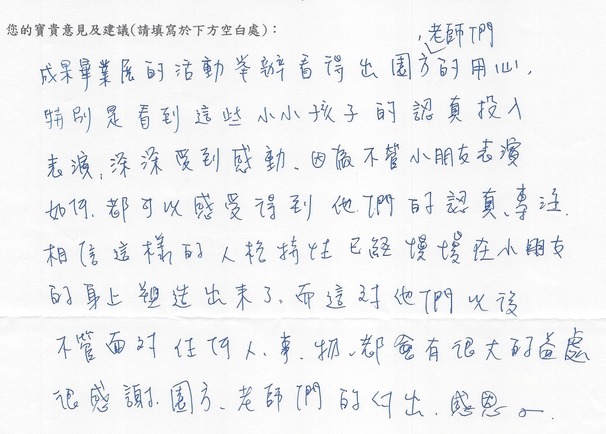 您的寶貴意見及建議(請填寫於下方空白處)：
、老師們
成果畢業展的活動舉辦看得出園方的用心,
特別是看到這些小小孩子的認真投入
表演,深深受到感動、因為不管小朋友表演
如何,都可以感受得到他們的認真、專注.
相信這樣的人格特性已經慢慢在小朋友
的身上塑造出來了,而這對他們以後
不管面對任何人、事、物、都會有很大的益處
很感謝園方、老師們的付出、感恩。